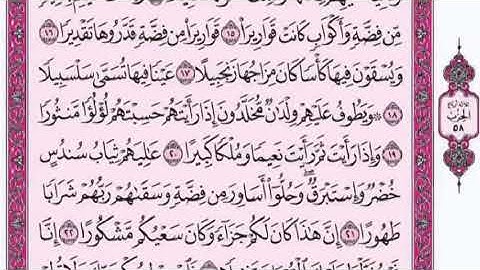 مِّن فِضَّةٍ وَأَكْوَابٍ كَانَتْ قَوَارِيرَا۠ ١٥ قَوَارِيرَا۟ مِن فِضَّةٍ قَدَّرُوهَا تَقْدِيرًا ١٦
وَيُسْقَوْنَ فِيهَا كَأْسًا كَانَ مِزَاجُهَا زَنجَبِيلًا ١٧ عَيْنًا فِيهَا تُسَمَّىٰ سَلْسَبِيلًا
١٨ ۞ وَيَطُوفُ عَلَيْهِمْ وِلْدَٰنٌ مُّخَلَّدُونَ إِذَا رَأَيْتَهُمْ حَسِبْتَهُمْ لُؤْلُؤًا مَّنثُورًا
١٩ وَإِذَا رَأَيْتَ ثَمَّ رَأَيْتَ نَعِيمًا وَمُلْكًا كَبِيرًا ٢٠ عَٰلِيَهُمْ ثِيَابُ سُندُسٍ
خُضْرٌ وَإِسْتَبْرَقٌ ۖ وَحُلُّوٓا۟ أَسَاوِرَ مِن فِضَّةٍ وَسَقَىٰهُمْ رَبُّهُمْ شَرَابًا
طَهُورًا ٢١ إِنَّ هَٰذَا كَانَ لَكُمْ جَزَآءً وَكَانَ سَعْيُكُم مَّشْكُورًا ٢٢ إِنَّا
الحزب
٥٨